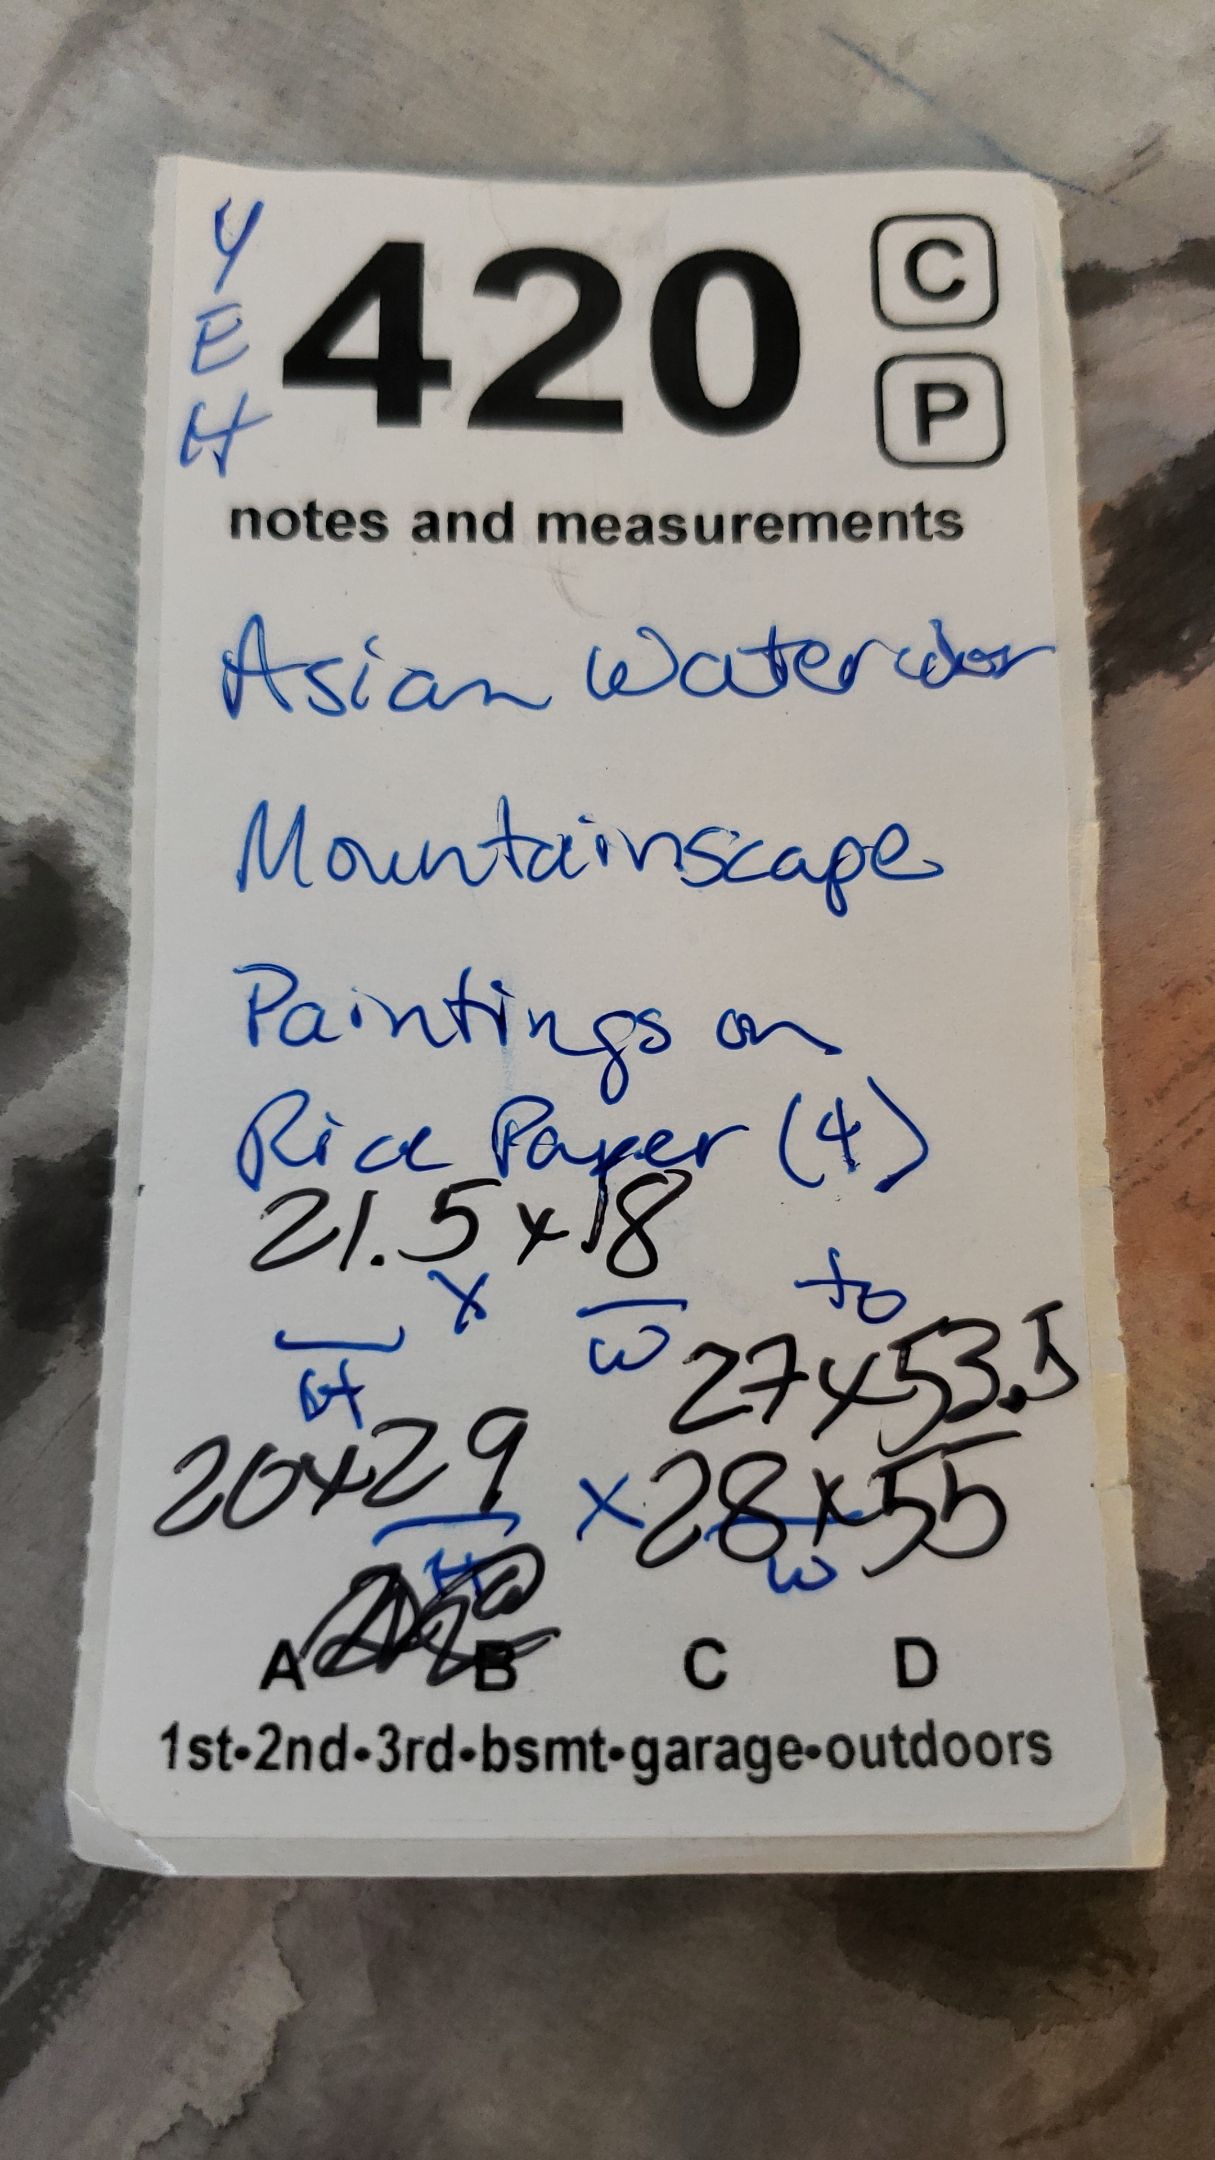 YEH
420
C
P
notes and measurements
Asian Watercolor
Mountainscape
Paintings on
Rice Paper (4)
21.5 x 18
X
to
H
W
27 x 53.5
20 x 29
X
28 x 55
H
W
A B C D
1st•2nd•3rd•bsmt•garage•outdoors